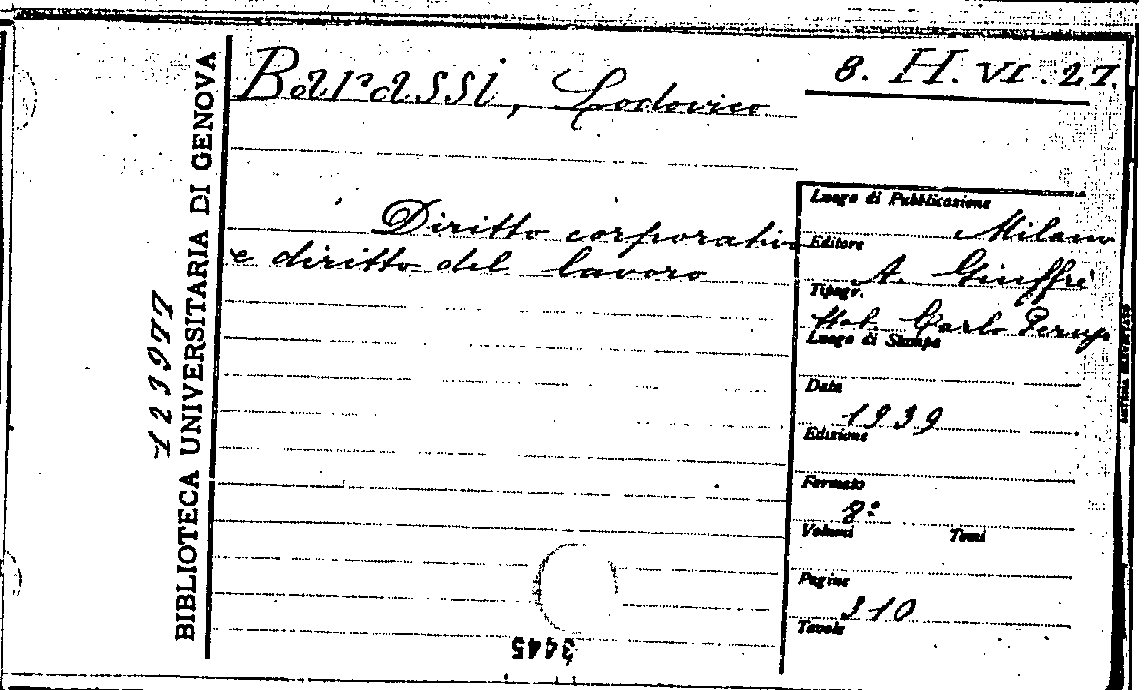 Barassi, Lodovico
8. H. VI. 27.
Diritto corporativo
e diritto del lavoro
BIBLIOTECA UNIVERSITARIA DI GENOVA
123977
Luogo di Pubblicazione
Milano
Editore
A. Giuffrè
Tipogr.
Carlo
Luogo di Stampa
Data
1939
Edizione
Formato
8º
Volumi Tomi
Pagine
310
Tavole
3445